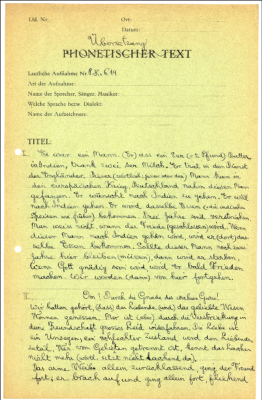 Lfd. Nr.
Ort:
Datum:
Übersetzung
PHONETISCHER TEXT
Lautliche Aufnahme Nr. P.K. 619
Art der Aufnahme:
Name des Sprecher, Sänger, Musiker:
Welche Sprache bezw. Dialekt:
Name des Aufzeichners:
TITEL:
I. Es war ein Mann. (Er) ass ein Ser (= 2 Pfund) Butter
in Indien, trank zwei Ser Milch. Er trat in den Dienst
der Engländer. Dieser Mann kam in
den europäischen Krieg. Deutschland nahm diesen Mann
gefangen. Er wünscht nach Indien zu gehen. Er will
nach Indien gehen. Er wird dasselbe Essen
Speisen wie früher) bekommen. Drei Jahre sind verstrichen.
Man weiss nicht, wann der Friede geschlossen wird. Wenn
dieser Mann nach Indien gehen wird, wird er dort das-
selbe Essen bekommen. Sollte dieser Mann noch zwei
Jahre hier bleiben (müssen), dann wird er sterben.
Wenn Gott gnädig sein wird, wird Er bald Frieden
machen. Wir werden (dann) von hier fortgehen.
II. Om! Durch die Gnade des wahren Guru!
Wir hatten gehört, (dass) der liebende (und) der geliebte Wesen
können geniessen. Mir ist
der Freundschaft grosses Leid widerfahren. Die Liebe ist
ein Unsegen, ein schlechter Zustand wird den Liebenden
zuteil. Wer vom Geliebten getrennt ist, kennt das Lachen
nicht mehr (wörtl.: sitzt nicht lachend da).
Das arme Volk allein zurücklassend, ging der Freund
fort; er brach auf und ging allein fort, fliehend